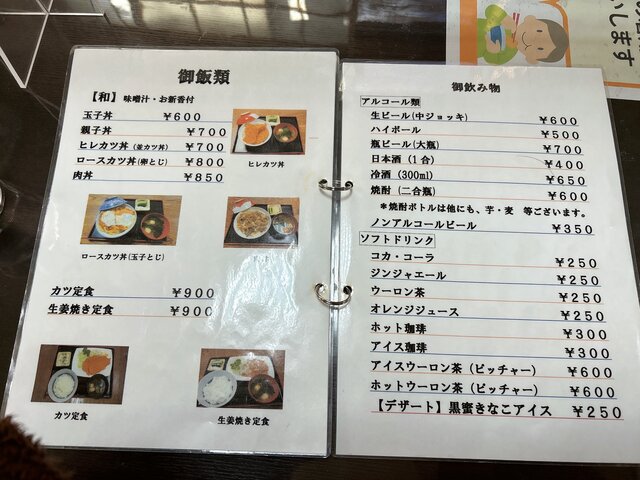 御飯類
【和】 味噌汁・お新香付
玉子丼 ￥600
親子丼 ￥700
ヒレカツ丼 (並カツ丼) ￥700
ロースカツ丼 (卵とじ) ￥800
肉丼 ￥850
ヒレカツ丼
ロースカツ丼(玉子とじ)
カツ定食 ￥900
生姜焼き定食 ￥900
カツ定食
生姜焼き定食
御飲み物
アルコール類
生ビール(中ジョッキ) ￥600
ハイボール ￥500
瓶ビール(大瓶) ￥700
日本酒 (1合) ￥400
冷酒 (300ml) ￥650
焼酎 (二合瓶) ￥600
＊焼酎ボトルは他にも、芋・麦 等ございます。
ノンアルコールビール ￥350
ソフトドリンク
コカ・コーラ ￥250
ジンジャエール ￥250
ウーロン茶 ￥250
オレンジジュース ￥250
ホット珈琲 ￥300
アイス珈琲 ￥300
アイスウーロン茶 (ピッチャー) ￥600
ホットウーロン茶 (ピッチャー) ￥600
【デザート】黒蜜きなこアイス ￥250
いします